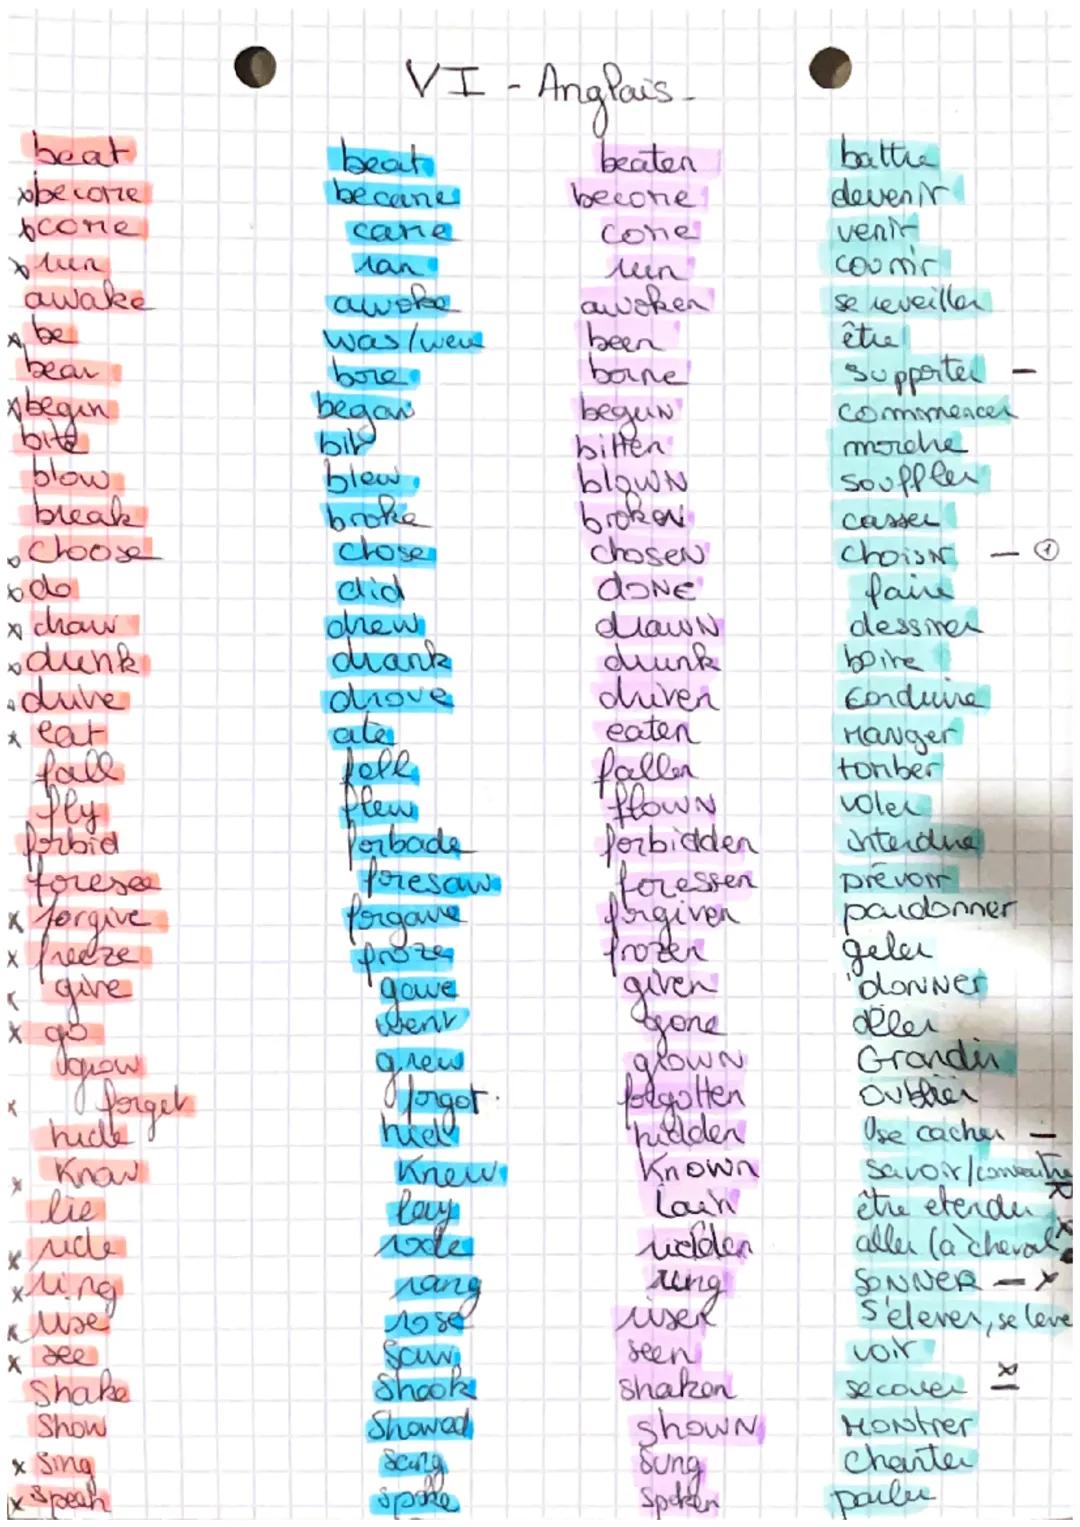 VI - Anglais
beat beat beaten battre
x become became become devenir
x come came come venir
x run ran run courir
awake awoke awoken se reveiller
x be was/were been être
bear bore borne supporter —
x begin began begun commencer
bite bit bitten mordre
blow blew blown souffler
break broke broken casser
x choose chose chosen choisir — ①
x do did done faire
x draw drew drawn dessiner
x drink drank drunk boire
x drive drove driven conduire
x eat ate eaten manger
fall fell fallen tomber
fly flew flown voler
forbid forbade forbidden interdire
foresee foresaw foressen prévoir
x forgive forgave forgiven pardonner
x freeze froze frozen geler
x give gave given donner
x go went gone aller
grow grew grown Grandir
x forget forgot forgotten oublier
hide hid hidden se cacher —
x know knew known savoir/connaitre x
lie lay lain être etendu x
x ride rode ridden aller (à cheval
x ring rang rung SONNER — x
x rise rose risen s'élever, se leve
x see saw seen voir
shake shook shaken secouer x
show showed shown montrer
x sing sang sung chanter
x speak spoke spoken parler